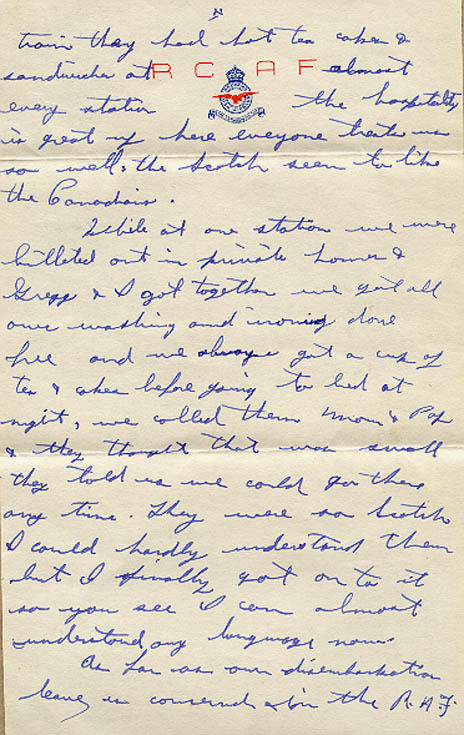 N
train they had hot tea cakes &
sandwiches at R C A F almost
every station the hospitality
is great up here everyone treats us
so well, the Scotch seem to like
the Canadians.
While at one station we were
billeted out in private homes &
Gregg & I got together we got all
our washing and ironing done
free and we always got a cup of
tea & cakes before going to bed at
night, we called them Mom & Pop
& they thought that was swell
they told us we could go there
any time. They were so Scotch
I could hardly understand them
but I finally got on to it
so you see I can almost
understand any language now.
As far as our disembarkation
leave is concerned in the R.A.F.